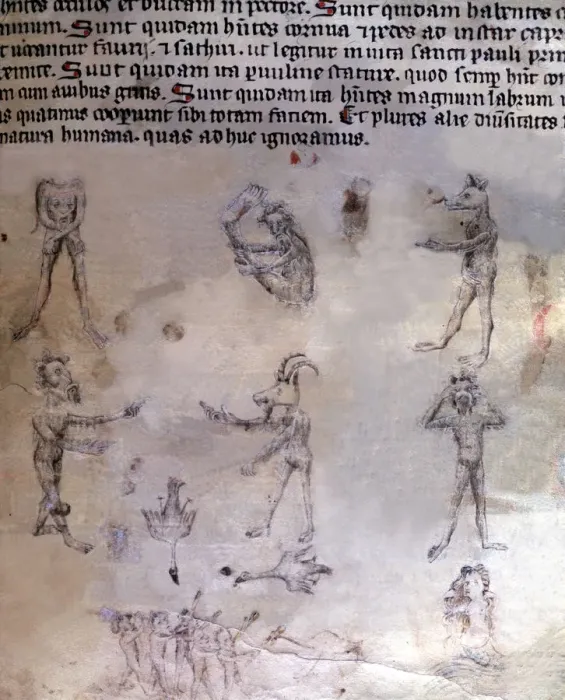 oculos et buccam in pectore. Sunt quidam habentes
Sunt quidam hñtes cornua ⁊ pedes ad instar capr
ut legitur in uita sancti pauli prim
Sunt quidam ita pusille stature. quod semp hñt
cum auibus gruis. Sunt quidam ita hñtes magnum labrum
quatinus cooperiunt sibi totam faciem. Et plures alie diuˀsitates
natura humana. quas adhuc ignoramus.